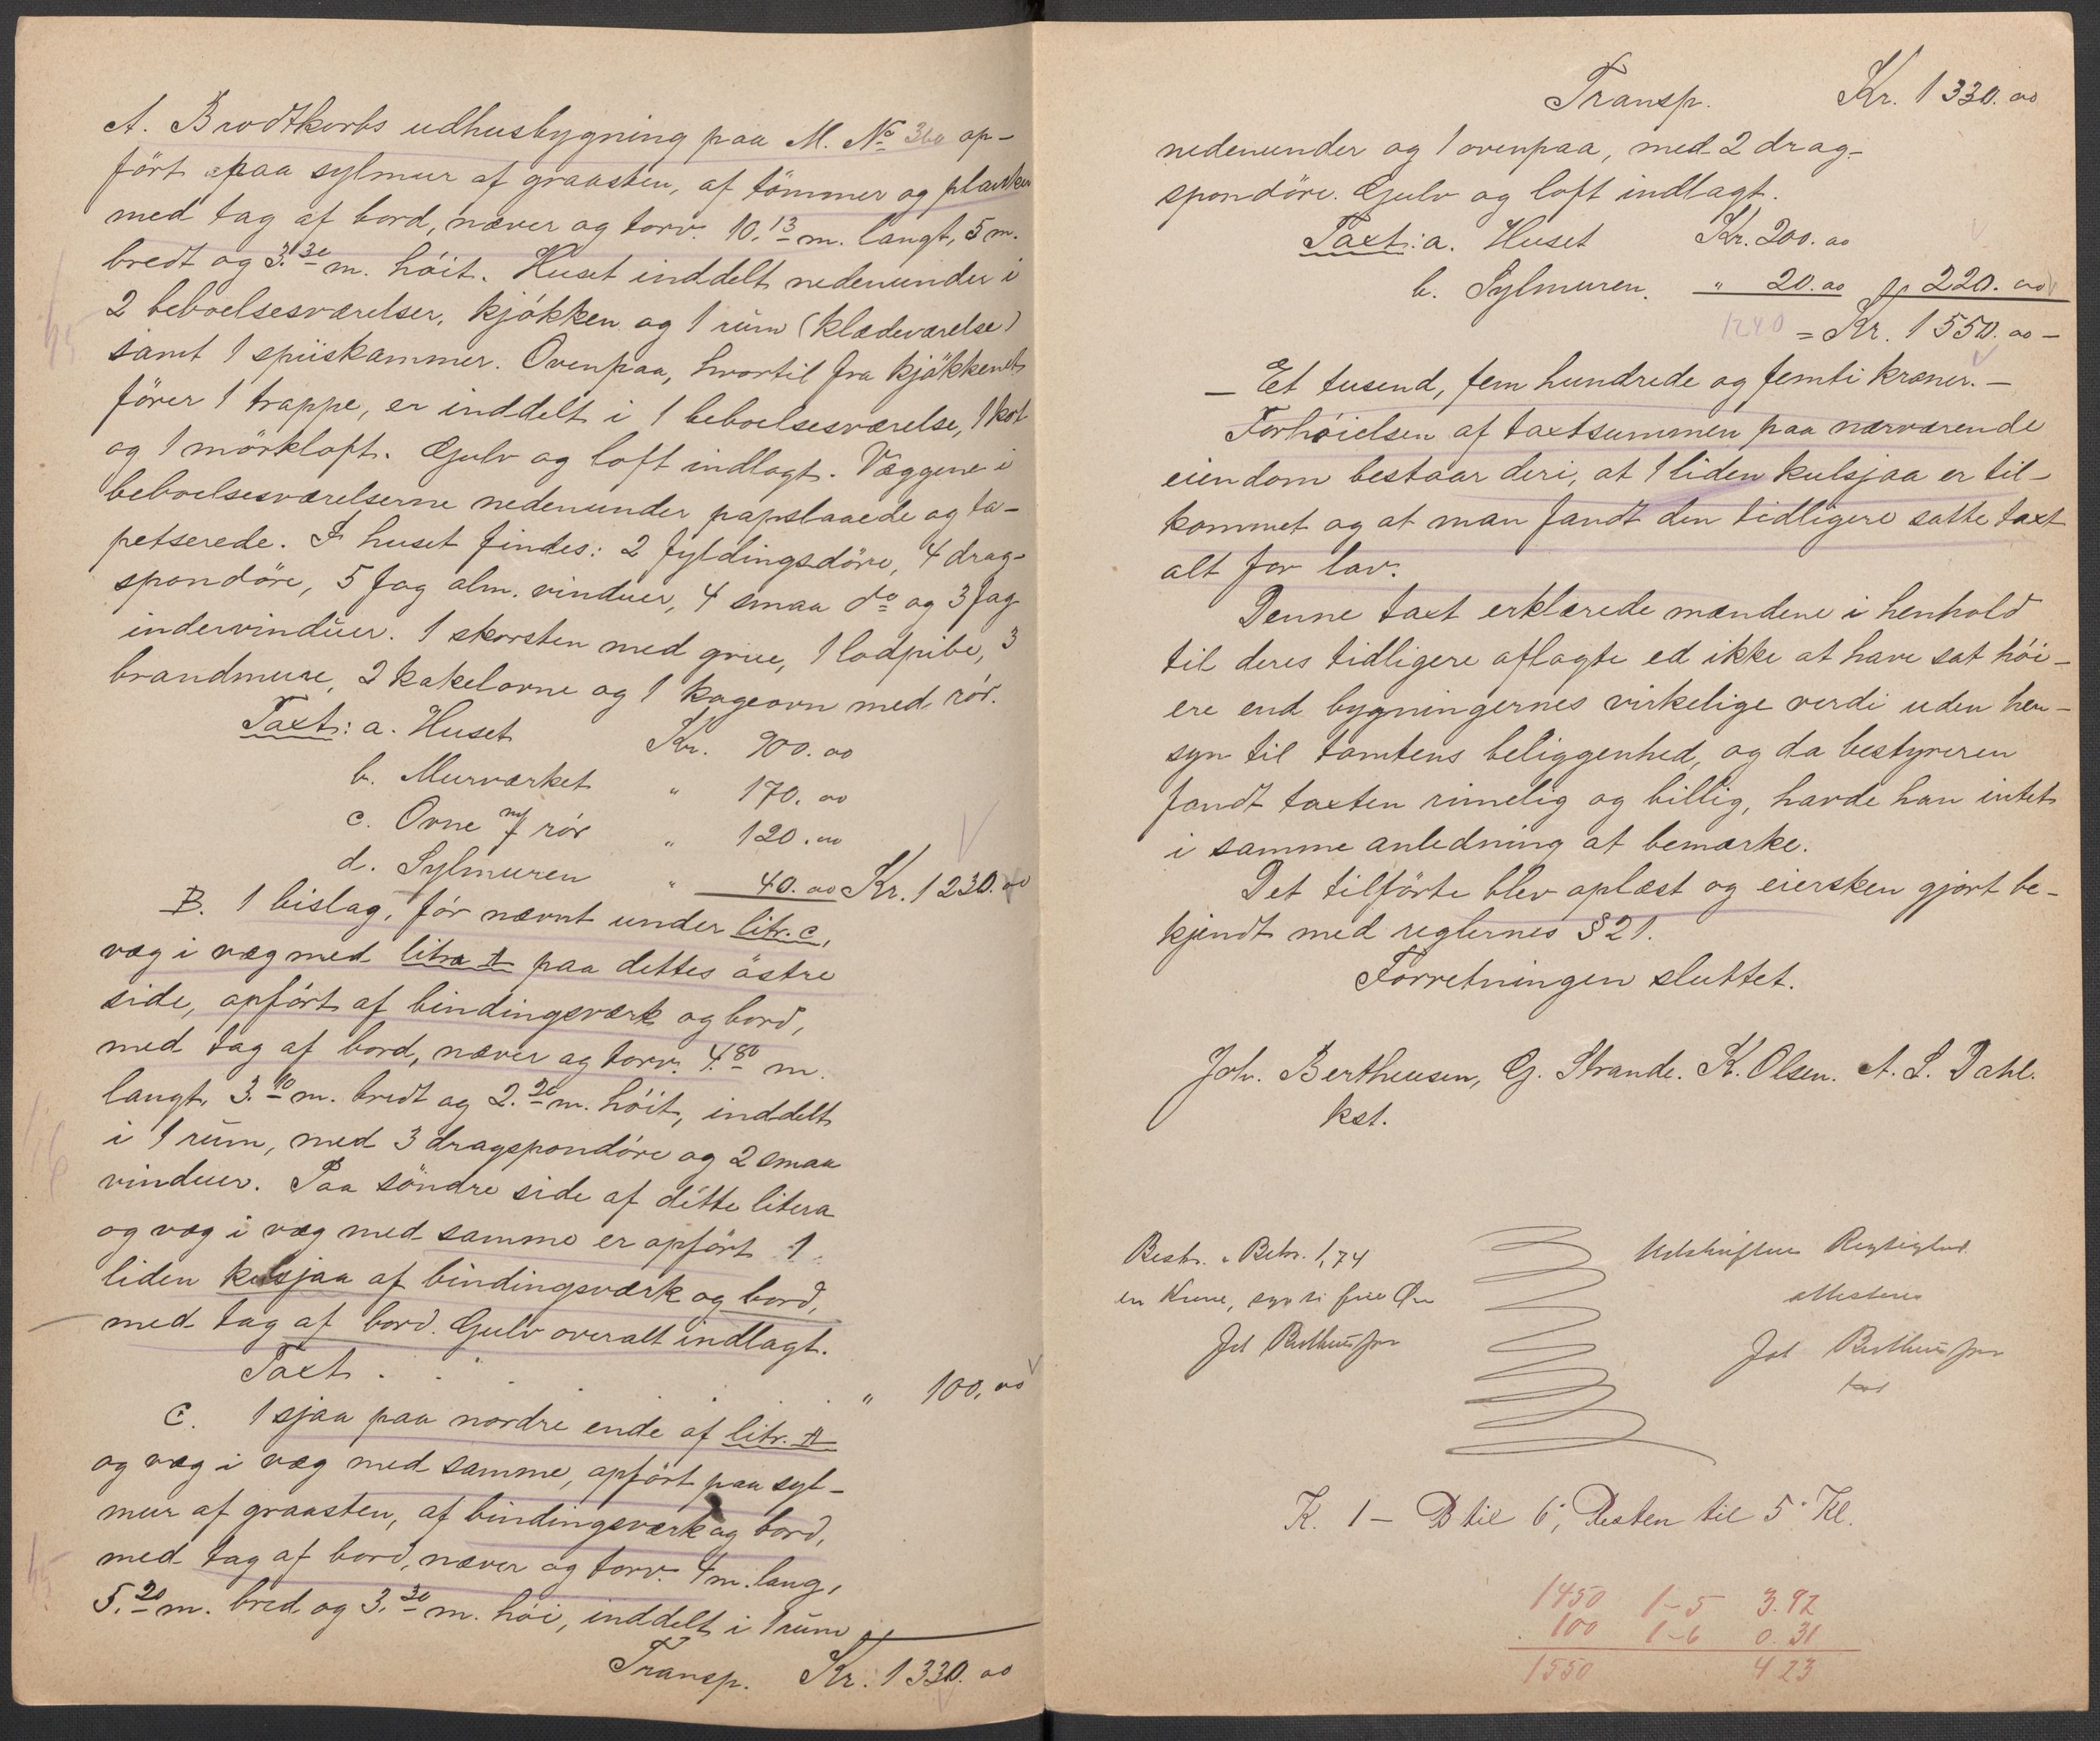 A. Brodtkorbs udhusbygning paa M. No 36a op-
ført paa sylmur af graasten, af tømmer og planker
med tag af bord, næver og torv. 10.13 m. langt, 5 m.
bredt og 3.30 m. høit. Huset inddelt nedenunder i
2 beboelsesværelser, kjøkken og 1 rum (klædeværelse)
samt 1 spiiskammer. Ovenpaa, hvortil fra kjøkkenet
fører 1 trappe, er inddelt i 1 beboelsesværelse, 1 kot
og 1 mörkloft. Gulv og loft indlagt. Væggene i
beboelsesværelserne nedenunder papslaaede og ta-
petserede. I huset findes: 2 fyldingsdøre, 4 drag-
spondøre, 5 fag alm. vinduer, 4 smaa do og 3 fag
indervinduer. 1 skorsten med grue, 1 lodpibe, 3
brandmure, 2 kakelovne og 1 kogeovn med rør.
Taxt: a. Huset Kr. 900.00
b. Murværket " 170.00
c. Ovne m/ rør " 120.00
d. Sylmuren " 40.00 Kr. 1230.00
B. 1 bislag, før nævnt under litr. C,
væg i væg med litra A paa dettes østre
side, opført af bindingsværk og bord,
med tag af bord, næver og torv. 4.80 m.
langt, 3.10 m. bredt og 2.20 m. høit, inddelt
i 1 rum, med 3 dragspondøre og 2 smaa
vinduer. Paa søndre side af dette litera
og væg i væg med samme er opført 1
liden kulsjaa af bindingsværk og bord,
med tag af bord. Gulv overalt indlagt.
Taxt . . . . . " 100.00
C. 1 sjaa paa nordre ende af litr. A
og væg i væg med samme, opført paa syl-
mur af graasten, af bindingsværk og bord,
med tag af bord, næver og torv. 4 m. lang,
5.20 m. bred og 3.30 m. høi, inddelt i 1 rum
Transp. Kr. 1330.00
Transp. Kr. 1330.00
nedenunder og 1 ovenpaa, med 2 drag-
spondøre. Gulv og loft indlagt.
Taxt: a. Huset Kr. 200.00
b. Sylmuren. " 20.00 " 220.00
1240 = Kr. 1550.00 -
- Et tusend, fem hundrede og femti kroner. -
Forhøielsen af taxtsummen paa nærværende
eiendom bestaar deri, at 1 liden kulsjaa er til-
kommet og at man fandt den tidligere satte taxt
alt for lav.
Denne taxt erklærede mændene i henhold
til deres tidligere aflagte ed ikke at have sat høi-
ere end bygningernes virkelige verdi uden hen-
syn til tomtens beliggenhed, og da bestyreren
fandt taxten rimelig og billig, havde han intet
i samme anledning at bemærke.
Det tilførte blev oplæst og eiersken gjort be-
kjendt med reglernes § 21.
Forretningen sluttet.
Joh. Bertheusen, G. Strande. K. Olsen. A. L. Dahl.
kst.
Bestr. Betr. 1,74
en Krone, syv ti fire Øre
Joh Bertheusen
Udskriftens Rigtighed
attesteres
Joh Bertheusen
kst
K. 1 - B til 6, Resten til 5 Kl.
1450 1-5 3.92
100 1-6 0.31
1550 4 23